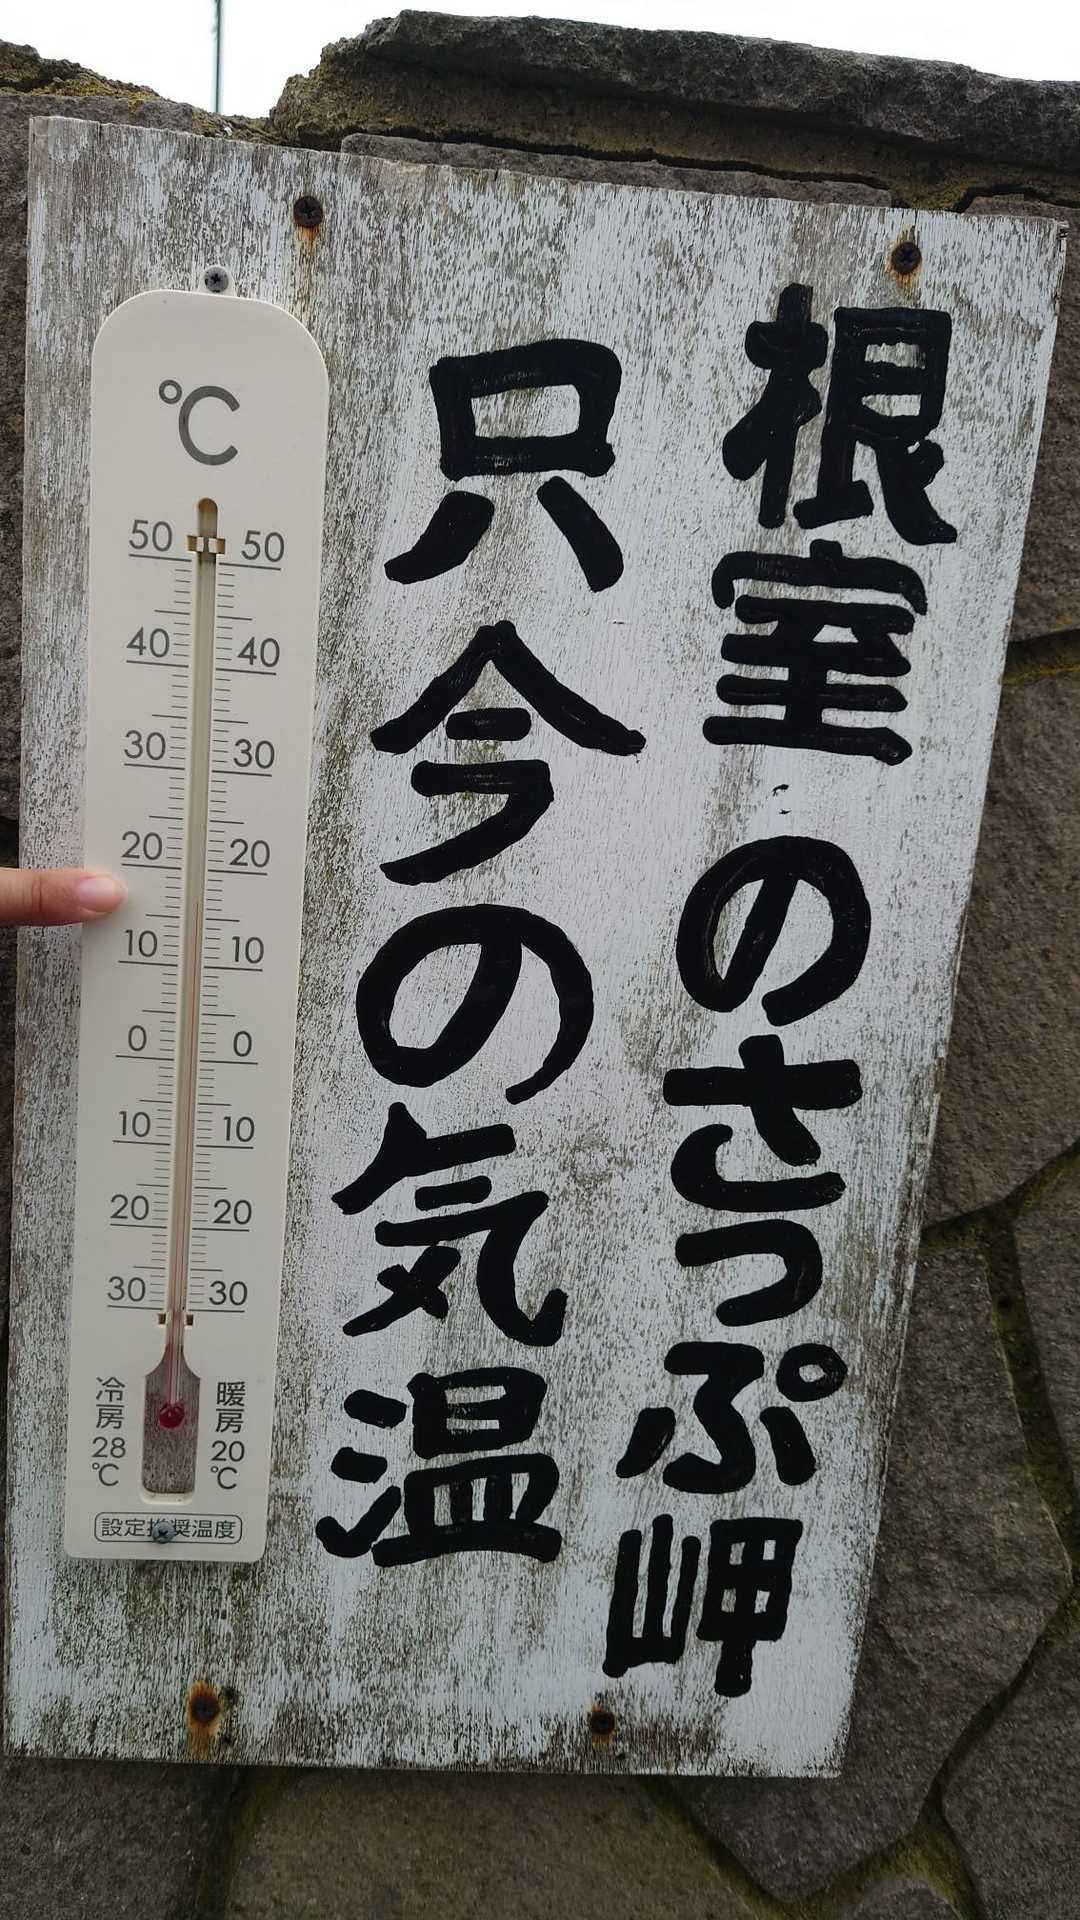 根室・のさっぷ岬
只今の気温
℃
50 50
40 40
30 30
20 20
10 10
0 0
10 10
20 20
30 30
冷房
28
℃
暖房
20
℃
設定推奨温度